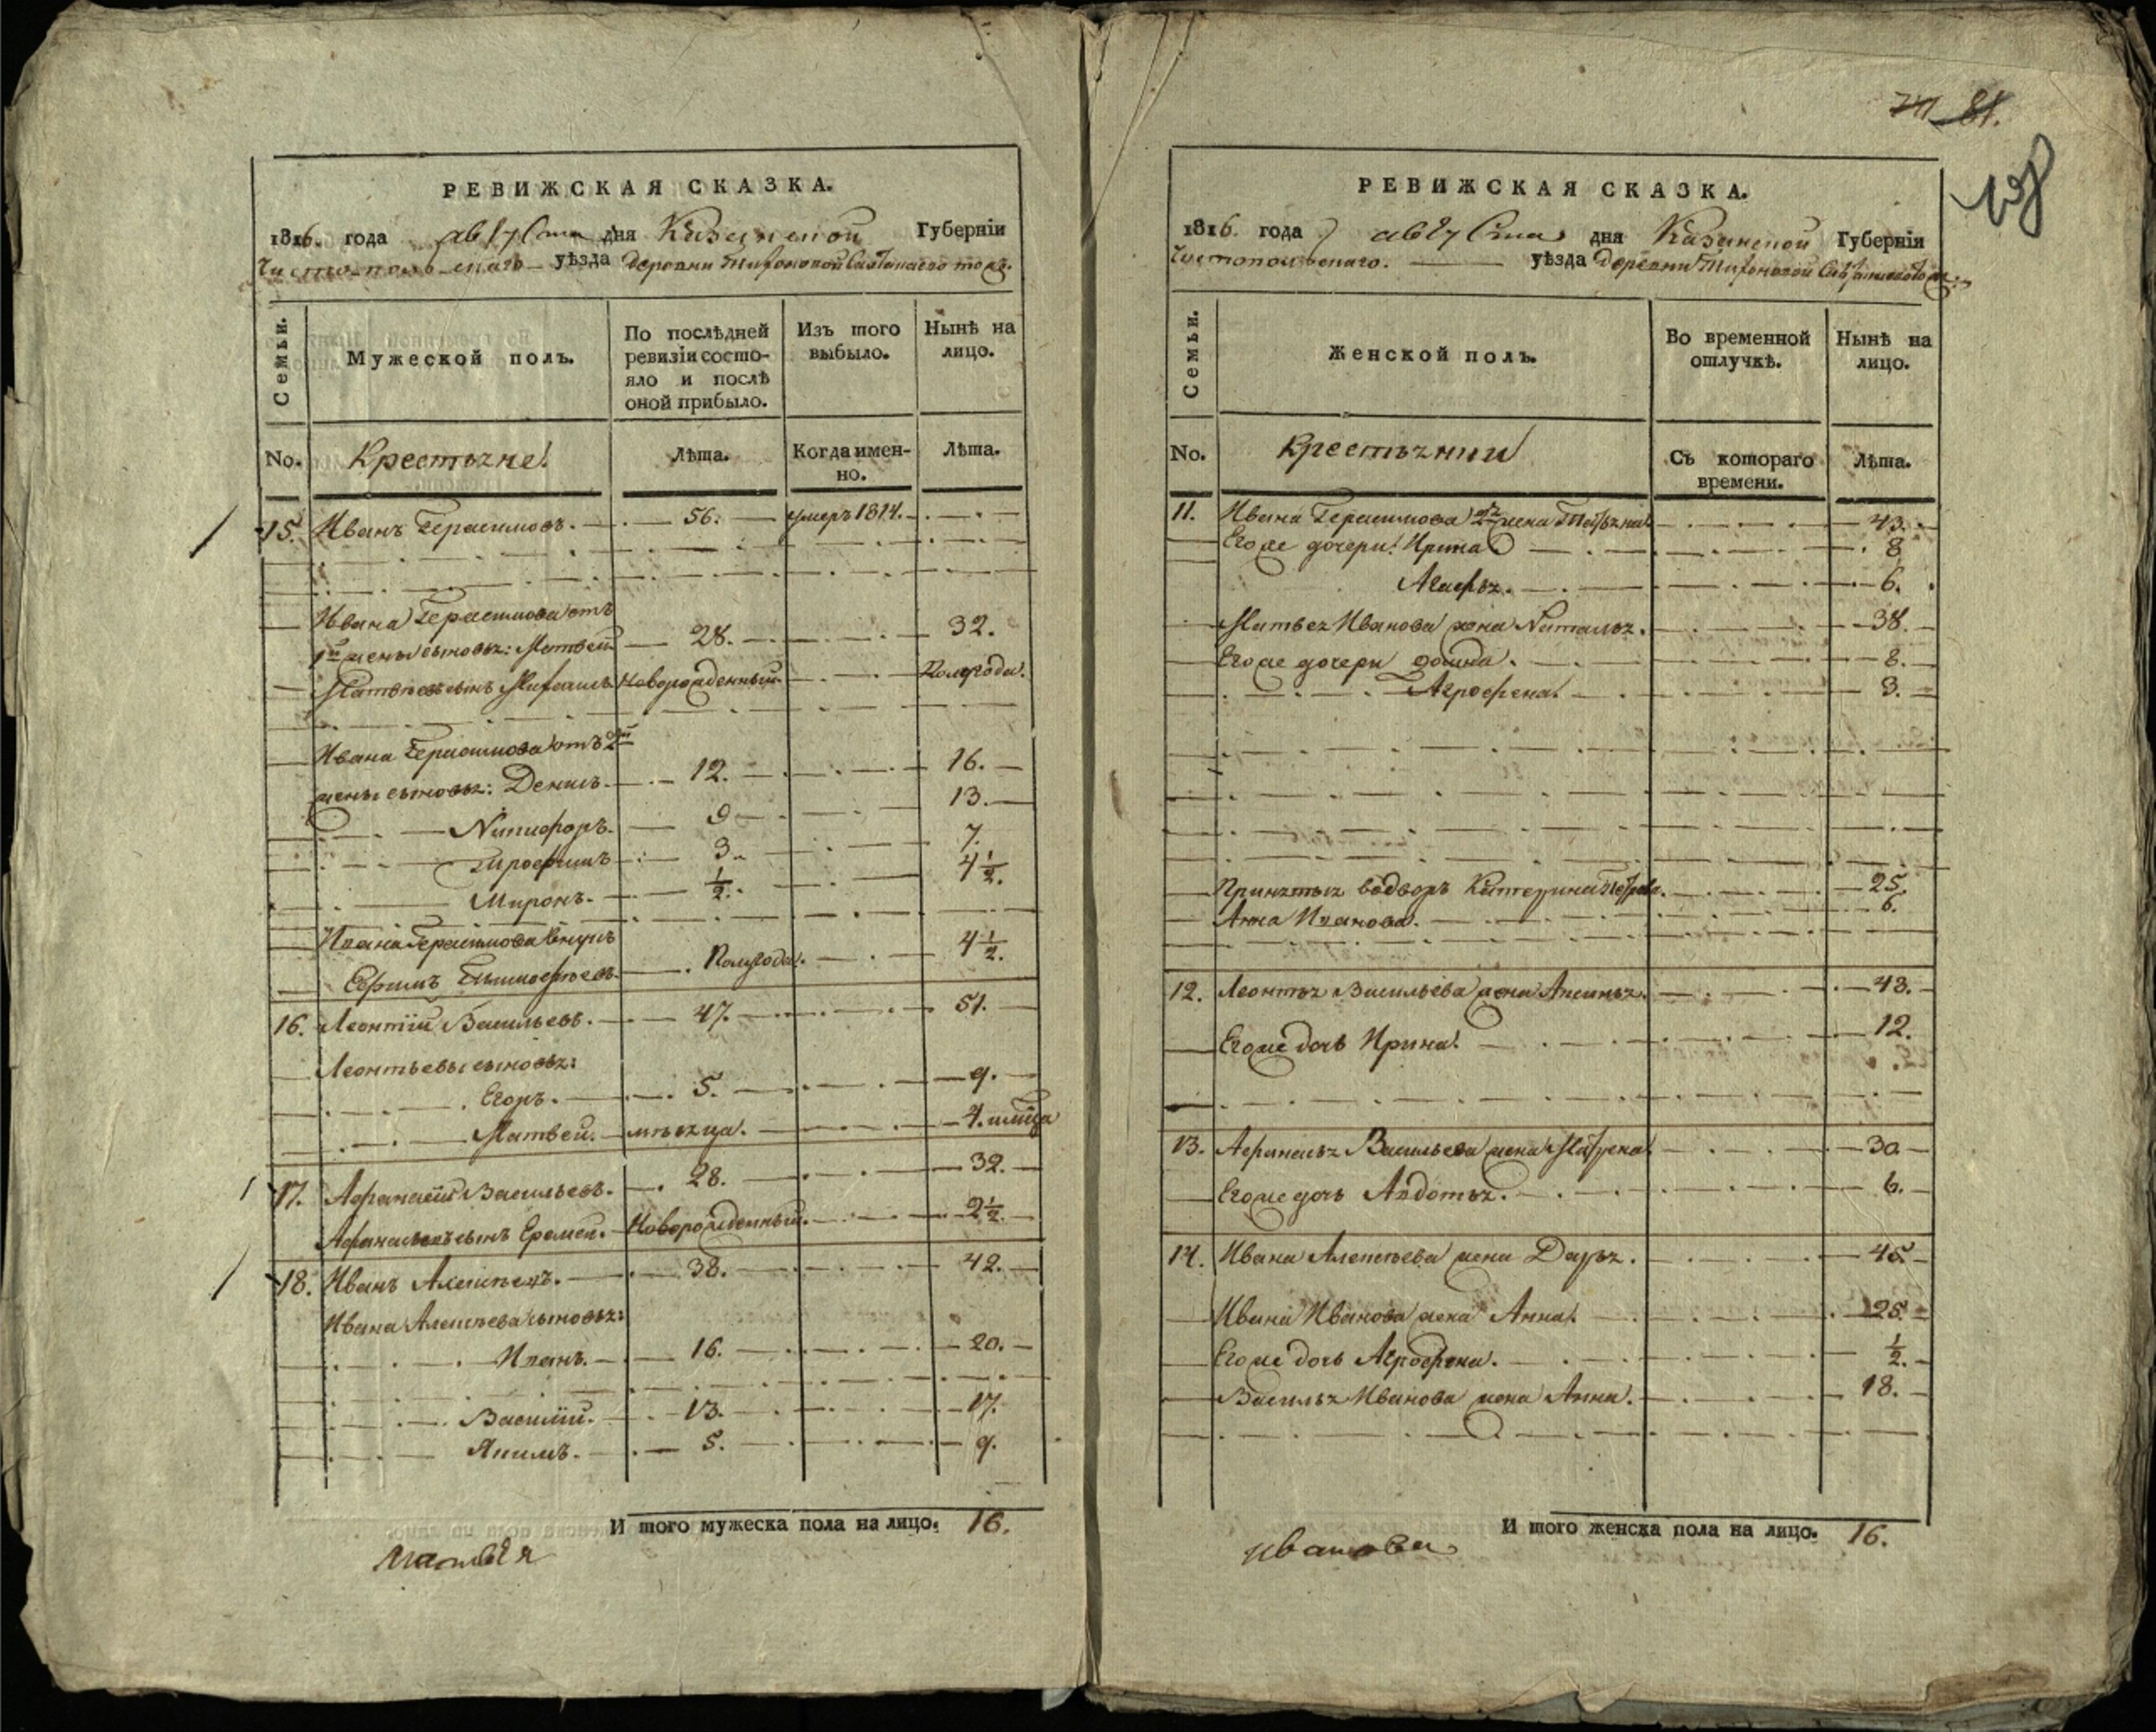 РЕВИЖСКАЯ СКАЗКА.
1816. года августа дня Казанской Губерніи
Чистопольскаго уѣзда деревни Тихоновой Савтанаево тожъ.
Семьи.
Мужеской полъ.
По послѣдней ревизіи состояло и послѣ оной прибыло.
Изъ того выбыло.
Нынѣ на лицо.
No. Крестьяне Лѣта. Когда именно. Лѣта.
15. Иванъ Герасимовъ. 56. умеръ 1814.
Ивана Герасимова отъ
1й жены сыновья: Матвей 28. 32.
Матвеевъ сынъ Новорожденный. Полгода.
Ивана Герасимова отъ 2й
жены сыновья: Денисъ. 12. 16.
Никифоръ. 9 13.
3. 7.
Миронъ. 1/2. 4 1/2.
Ивана Герасимова внукъ
Ефимъ Тимофеевъ. Полугода. 4 1/2.
16. Леонтій Васильевъ. 47. 51.
Леонтьевы сыновья:
Егоръ. 5. 9.
Матвей. мѣсяца. 4.
17. Афанасій Васильевъ. 28. 32.
Афанасьевъ сынъ Еремей. Новорожденный. 2 1/2.
18. Иванъ Алексѣевъ. 38. 42.
Ивана Алексѣева сыновья:
Иванъ. 16. 20.
Василій. 13. 17.
Акимъ. 5. 9.
И того мужеска пола на лицо. 16.
Матвѣя
81.
РЕВИЖСКАЯ СКАЗКА.
1816. года августа дня Казанской Губерніи
Чистопольскаго. уѣзда деревни Тихоновой
Семьи.
Женской полъ.
Во временной отлучкѣ.
Нынѣ на лицо.
No. Крестьянки Съ котораго времени. Лѣта.
11. Ивана Герасимова 2я жена Татьяна 43.
Его же дочери: Ирина 8
Агафья. 6.
Матвея Иванова жена Наталья. 38.
Его же дочери 8.
Агрофена. 3.
Принятыя в дворъ Катерина Петрова. 25.
Анна Иванова. 6.
12. Леонтья Васильева жена Аксинья. 43.
Его же дочь Ирина. 12.
13. Афанасья Васильева жена Матрена 30
Его же дочь Авдотья. 6.
14. Ивана Алексѣева жена Дарья. 45.
Ивана Иванова жена Анна. 25.
Его же дочь Агрофена. 1/2.
Василья Иванова жена Анна. 18.
И того женска пола на лицо. 16.
Иванова